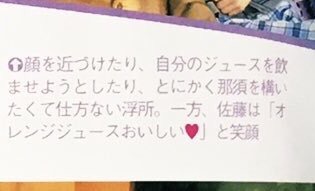 ⬆顔を近づけたり、自分のジュースを飲
ませようとしたり、とにかく那須を構い
たくて仕方ない浮所。一方、佐藤は「オ
レンジジュースおいしい♥」と笑顔